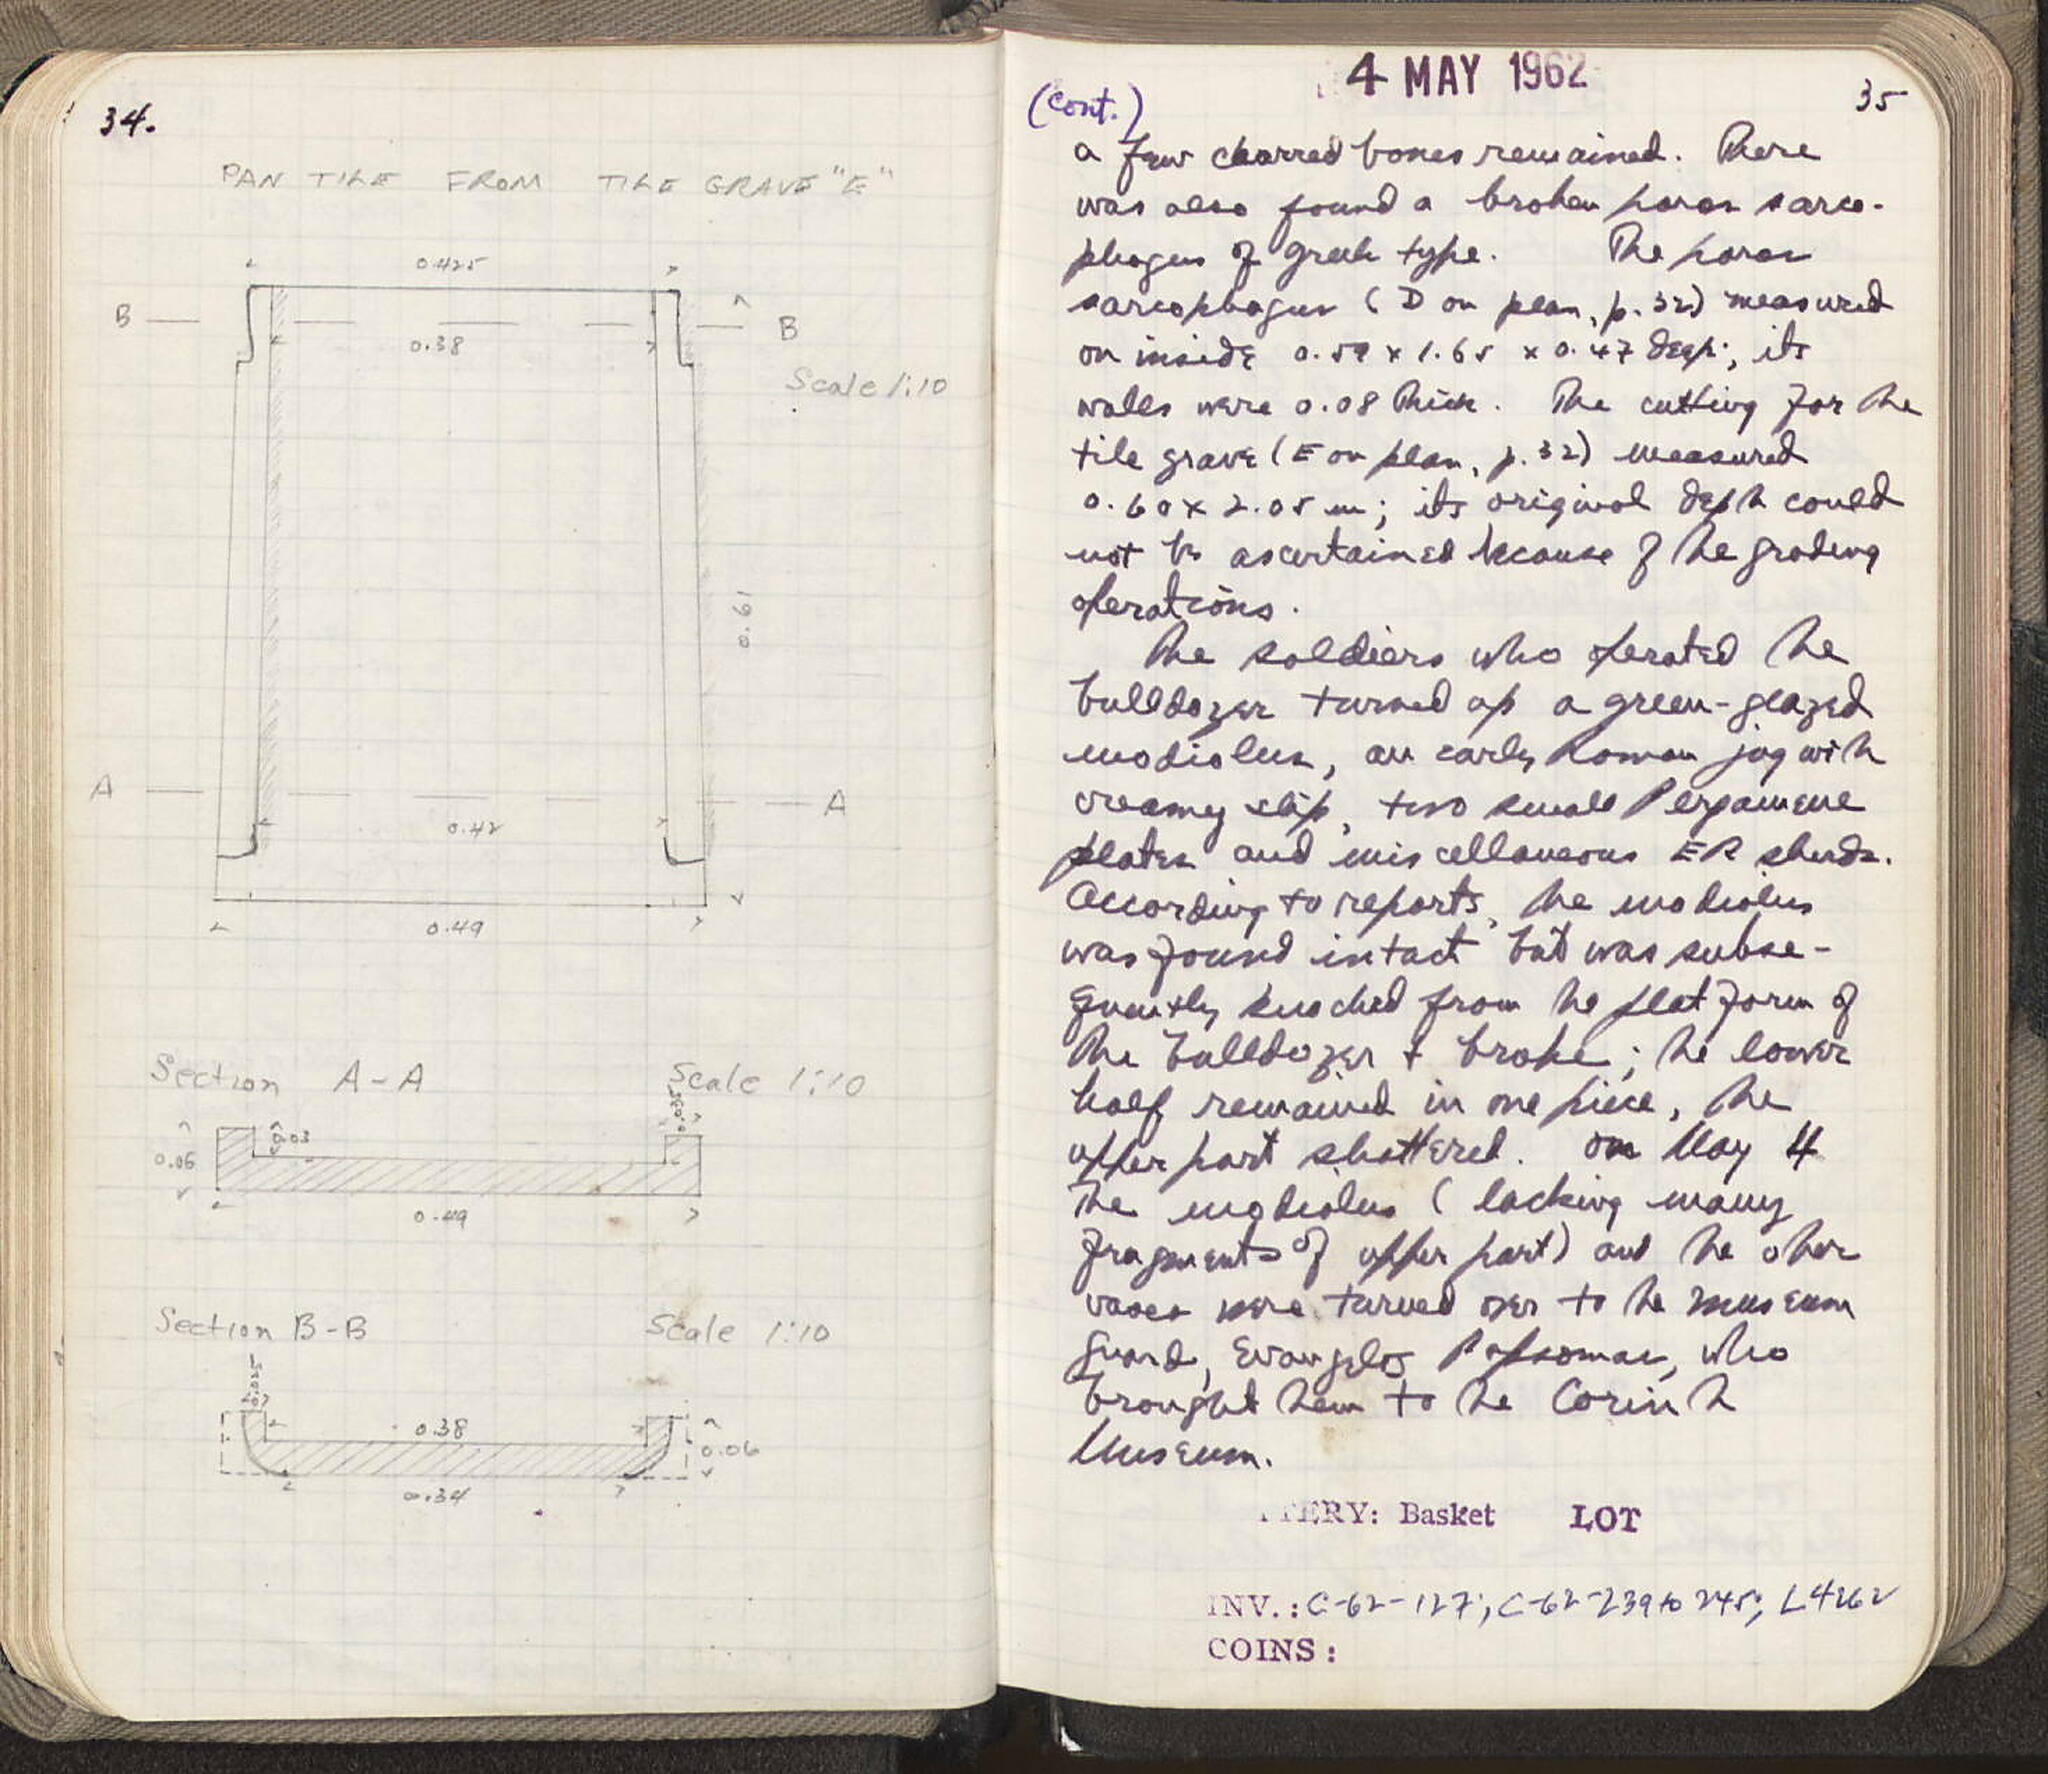 34.
PAN TILE FROM TILE GRAVE "E"
0.425
B B
0.38
Scale 1:10
0.61
A A
0.42
0.49
Section A-A Scale 1:10
0.03
0.06
0.49
Section B-B Scale 1:10
0.38
0.06
0.34
4 MAY 1962
35
(cont.)
a few charred bones remained. There
was also found a broken poros sarco-
phagus of Greek type. The poros
sarcophagus (D on plan, p. 32) measured
on inside 0.59 x 1.65 x 0.47 deep; its
walls were 0.08 thick. The cutting for the
tile grave (E on plan, p. 32) measured
0.60 x 2.05 m; its original depth could
not be ascertained because of the grading
operations.
The soldiers who operated the
bulldozer turned up a green-glazed
modiolus, an early Roman jug with
creamy slip, two small Pergamene
plates and miscellaneous ER sherds.
According to reports, the modiolus
was found intact but was subse-
quently knocked from the platform of
the bulldozer + broke; the lower
half remained in one piece, the
upper part shattered. On May 4
the modiolus (lacking many
fragments of upper part) and the other
vases were turned over to the museum
guard, Evangelos Papsomas, who
brought them to the Corinth
Museum.
TTERY: Basket LOT
INV.: C-62-127; C-62-239 to 245; L4262
COINS: